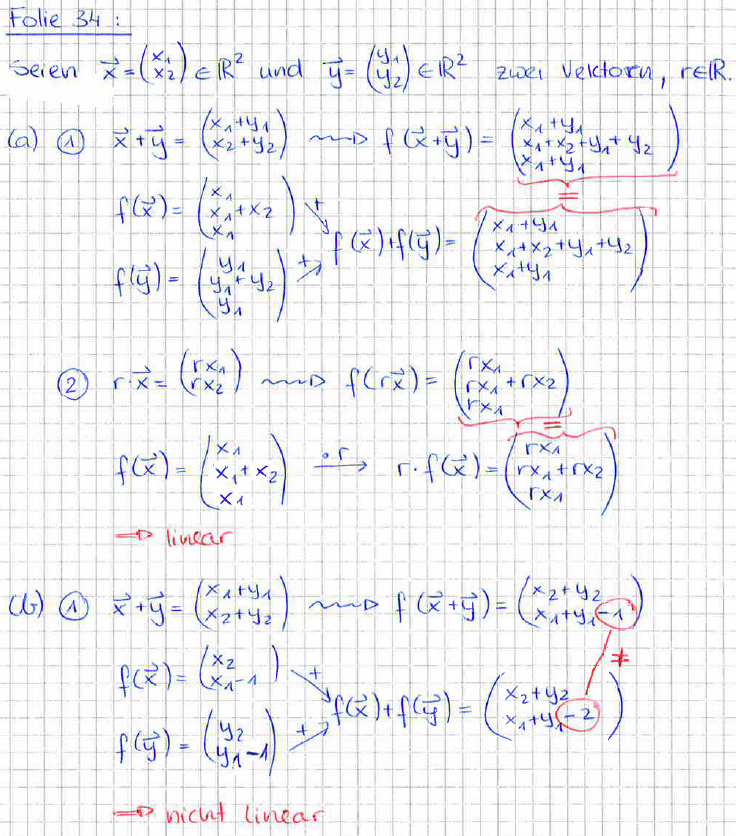 Folie 34 :
Seien x⃗ = (x₁ x₂) ∈ ℝ² und y⃗ = (y₁ y₂) ∈ ℝ² zwei Vektoren, r∈ℝ.
(a) ① x⃗+y⃗ = (x₁+y₁ x₂+y₂) ⟿ f(x⃗+y⃗) = (x₁+y₁ x₁+x₂+y₁+y₂ x₁+y₁)
=
f(x⃗) = (x₁ x₁+x₂ x₁) +
f(x⃗)+f(y⃗) = (x₁+y₁ x₁+x₂+y₁+y₂ x₁+y₁)
f(y⃗) = (y₁ y₁+y₂ y₁) +
② r·x⃗ = (rx₁ rx₂) ⟿ f(rx⃗) = (rx₁ rx₁+rx₂ rx₁)
=
f(x⃗) = (x₁ x₁+x₂ x₁) —·r→ r·f(x⃗) = (rx₁ rx₁+rx₂ rx₁)
⇒ linear
(b) ① x⃗+y⃗ = (x₁+y₁ x₂+y₂) ⟿ f(x⃗+y⃗) = (x₂+y₂ x₁+y₁−1)
≠
f(x⃗) = (x₂ x₁−1) +
f(x⃗)+f(y⃗) = (x₂+y₂ x₁+y₁−2)
f(y⃗) = (y₂ y₁−1) +
⇒ nicht linear